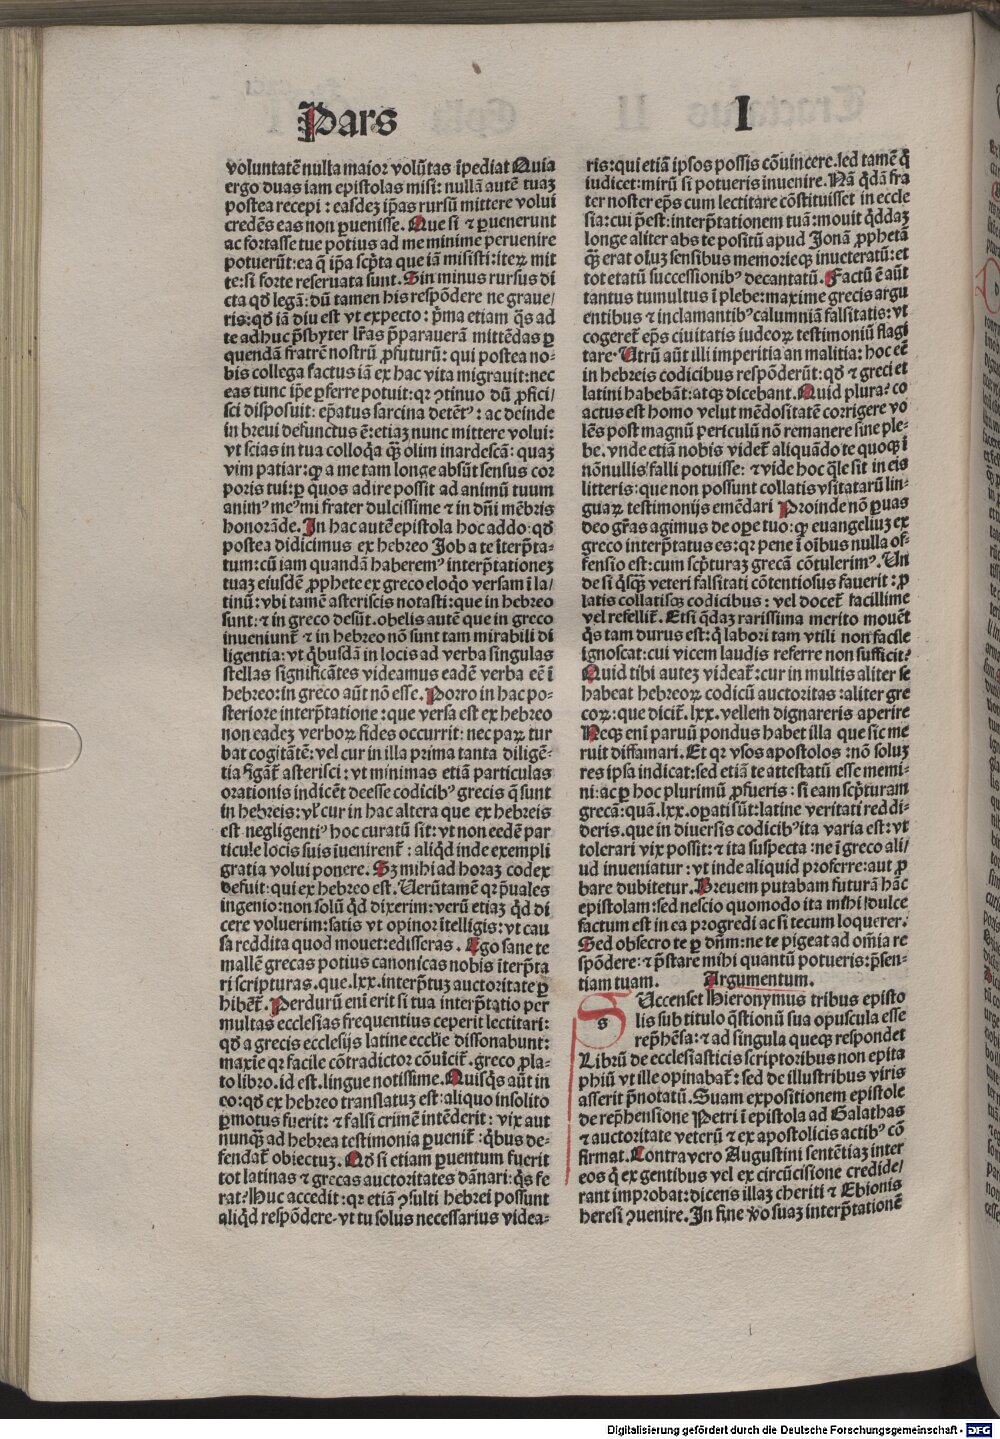 Pars
I
voluntatē nulla maior volūtas īpediat Quia
ergo duas iam epistolas misi: nullā autē tuaꝫ
postea recepi: easdeꝫ ip̄as rursū mittere volui
credēs eas non ꝑuenisse. Que si ⁊ ꝑuenerunt
ac fortasse tue potius ad me minime peruenire
potuerūt: ea q̄ ip̄a scp̄ta que iā misisti: iteꝝ mit
te: si forte reseruata sunt. Sin minus rursus di
cta qd̄ legā: dū tamen his respōdere ne graue/
ris: qd̄ iā diu est vt expecto: p̄ma etiam q̄s ad
te adhuc p̄sbyter lr̄as p̄parauerā mittēdas ꝑ
quendā fratrē nostrū ꝓfuturū: qui postea no-
bis collega factus iā ex hac vita migrauit: nec
eas tunc ip̄e ꝑferre potuit: qꝛ ꝯtinuo dū ꝓfici/
sci disposuit: ep̄atus sarcina detēt᾽: ac deinde
in breui defunctus ē: etiaꝫ nunc mittere volui:
vt scias in tua colloq̄a q̄ꝫ olim inardescā: quaꝫ
vim patiar: ꝙ a me tam longe absūt sensus cor
poris tui: ꝑ quos adire possit ad animū tuum
anim᾽ me᾽ mi frater dulcissime ⁊ in dn̄i mēbris
honorāde. In hac autē epistola hoc addo: qd̄
postea didicimus ex hebreo Job a te īterp̄ta-
tum: cū iam quandā haberem᾽ interp̄tationeꝫ
tuaꝫ eiusdē ꝓphete ex greco eloq̄o versam ī la/
tinū: vbi tamē asteriscis notasti: que in hebreo
sunt: ⁊ in greco desūt. obelis autē que in greco
inueniunt᷑ ⁊ in hebreo nō sunt tam mirabili di
ligentia: vt q̄busdā in locis ad verba singulas
stellas significātes videamus eadē verba eē ī
hebreo: in greco aūt nō esse. Porro in hac po-
steriore interp̄tatione: que versa est ex hebreo
non eadeꝫ verboꝝ fides occurrit: nec paꝝ tur
bat cogitātē: vel cur in illa prima tanta diligē-
tia figāt᷑ asterisci: vt minimas etiā particulas
orationis indicēt deesse codicib᾽ grecis q̄ sunt
in hebreis: vl᷑ cur in hac altera que ex hebreis
est negligenti᾽ hoc curatū sit: vt non eedē par
ticule locis suis īuenirent᷑: aliq̄d inde exempli
gratia volui ponere. Sꝫ mihi ad horaꝫ codex
defuit: qui ex hebreo est. Verūtamē qꝛ p̄uales
ingenio: non solū q̄d dixerim: verū etiaꝫ q̄d di
cere voluerim: satis vt opinor ītelligis: vt cau
sa reddita quod mouet: edisseras. Ego sane te
mallē grecas potius canonicas nobis īterp̄ta
ri scripturas. que. lxx. interp̄tuꝫ auctoritate ꝑ
hibēt᷑. Perdurū eni erit si tua interp̄tatio per
multas ecclesias frequentius ceperit lectitari:
qd̄ a grecis ecclesijs latine eccl̄ie dissonabunt:
maxīe qꝛ facile cōtradictor cōuīcit᷑. greco ꝓla-
to libro. id est. lingue notissime. Quisq̄s aūt in
eo: qd̄ ex hebreo translatuꝫ est: aliquo insolito
ꝑmotus fuerit: ⁊ falsi crimē intēderit: vix aut
nunquā ad hebrea testimonia ꝑuenit᷑: q̄bus de-
fendat᷑ obiectuꝫ. Qd̄ si etiam ꝑuentum fuerit
tot latinas ⁊ grecas auctoritates dānari: q̄s fe
rat? Huc accedit: qꝛ etiā ꝯsulti hebrei possunt
aliq̄d respōdere. vt tu solus necessarius videa-
ris: qui etiā ipsos possis cōuincere. sed tamē q̄
iudicet: mirū si potueris inuenire. Nā q̄dā fra
ter noster ep̄s cum lectitare cōstituisset in eccle
sia: cui p̄est: interp̄tationem tuā: mouit q̄ddaꝫ
longe aliter abs te positū apud Jonā ꝓphetā
q̄ꝫ erat oīuꝫ sensibus memorieqꝫ inueteratū: et
tot etatū successionib᾽ decantatū. Factū ē aūt
tantus tumultus ī plebe: maxime grecis argu
entibus ⁊ inclamantib᾽ calumniā falsitatis: vt
cogeret᷑ ep̄s ciuitatis iudeoꝝ testimoniū flagi
tare. Utrū aūt illi imperitia an malitia: hoc eē
in hebreis codicibus respōderūt: qd̄ ⁊ greci et
latini habebāt: atqꝫ dicebant. Quid plura? co
actus est homo velut mēdositatē corrigere vo
lēs post magnū periculū nō remanere sine ple-
be. vnde etiā nobis videt᷑ aliquādo te quoqꝫ ī
nōnullis falli potuisse: ⁊ vide hoc q̄le sit in eis
litteris: que non possunt collatis vsitatarū lin-
guaꝝ testimonijs emēdari Proinde nō ꝑuas
deo gr̄as agimus de oꝑe tuo: ꝙ euangeliuꝫ ex
greco interp̄tatus es: qꝛ pene ī oībus nulla of-
fensio est: cum scp̄turaꝫ grecā cōtulerim᾽. Un
de si q̄sqꝫ veteri falsitati cōtentiosus fauerit: ꝓ
latis collatisqꝫ codicibus: vel docet᷑ facillime
vel refellit᷑. Etsi q̄daꝫ rarissima merito mouēt
q̄s tam durus est: q̄ labori tam vtili non facile
ignoscat: cui vicem laudis referre non sufficit?
Quid tibi auteꝫ videat᷑: cur in multis aliter se
habeat hebreoꝝ codicū auctoritas: aliter gre
coꝝ: que dicit᷑. lxx. vellem dignareris aperire
Neqꝫ eni paruū pondus habet illa que sic me
ruit diffamari. Et qꝛ vsos apostolos: nō soluꝫ
res ipsa indicat: sed etiā te attestatū esse memi-
ni: ac ꝑ hoc plurimū ꝓfueris: si eam scp̄turam
grecā: quā. lxx. oꝑati sūt: latine veritati reddi-
deris. que in diuersis codicib᾽ ita varia est: vt
tolerari vix possit: ⁊ ita suspecta: ne ī greco ali/
ud inueniatur: vt inde aliquid proferre: aut ꝓ
bare dubitetur. Breuem putabam futurā hāc
epistolam: sed nescio quomodo ita mihi dulce
factum est in ea progredi ac si tecum loquerer.
Sed obsecro te ꝑ dn̄m: ne te pigeat ad om̄ia re
spōdere: ⁊ p̄stare mihi quantū potueris: p̄sen-
tiam tuam. Argumentum.
s
Uccenset Hieronymus tribus episto
lis sub titulo q̄stionū sua opuscula esse
rep̄hēsa: ⁊ ad singula queqꝫ respondet
Librū de ecclesiasticis scriptoribus non epita
phiū vt ille opinabat᷑: sed de illustribus viris
asserit p̄notatū. Suam expositionem epistole
de rep̄hensione Petri ī epistola ad Galathas
⁊ auctoritate veterū ⁊ ex apostolicis actib᾽ cō
firmat. Contra vero Augustini sentētiaꝫ inter
eos q̄ ex gentibus vel ex circūcisione credide/
rant improbat: dicens illaꝫ cheriti ⁊ Ebionis
heresi ꝯuenire. In fine ꝟo suaꝫ interp̄tationē
Digitalisierung gefördert durch die Deutsche Forschungsgemeinschaft - DFG